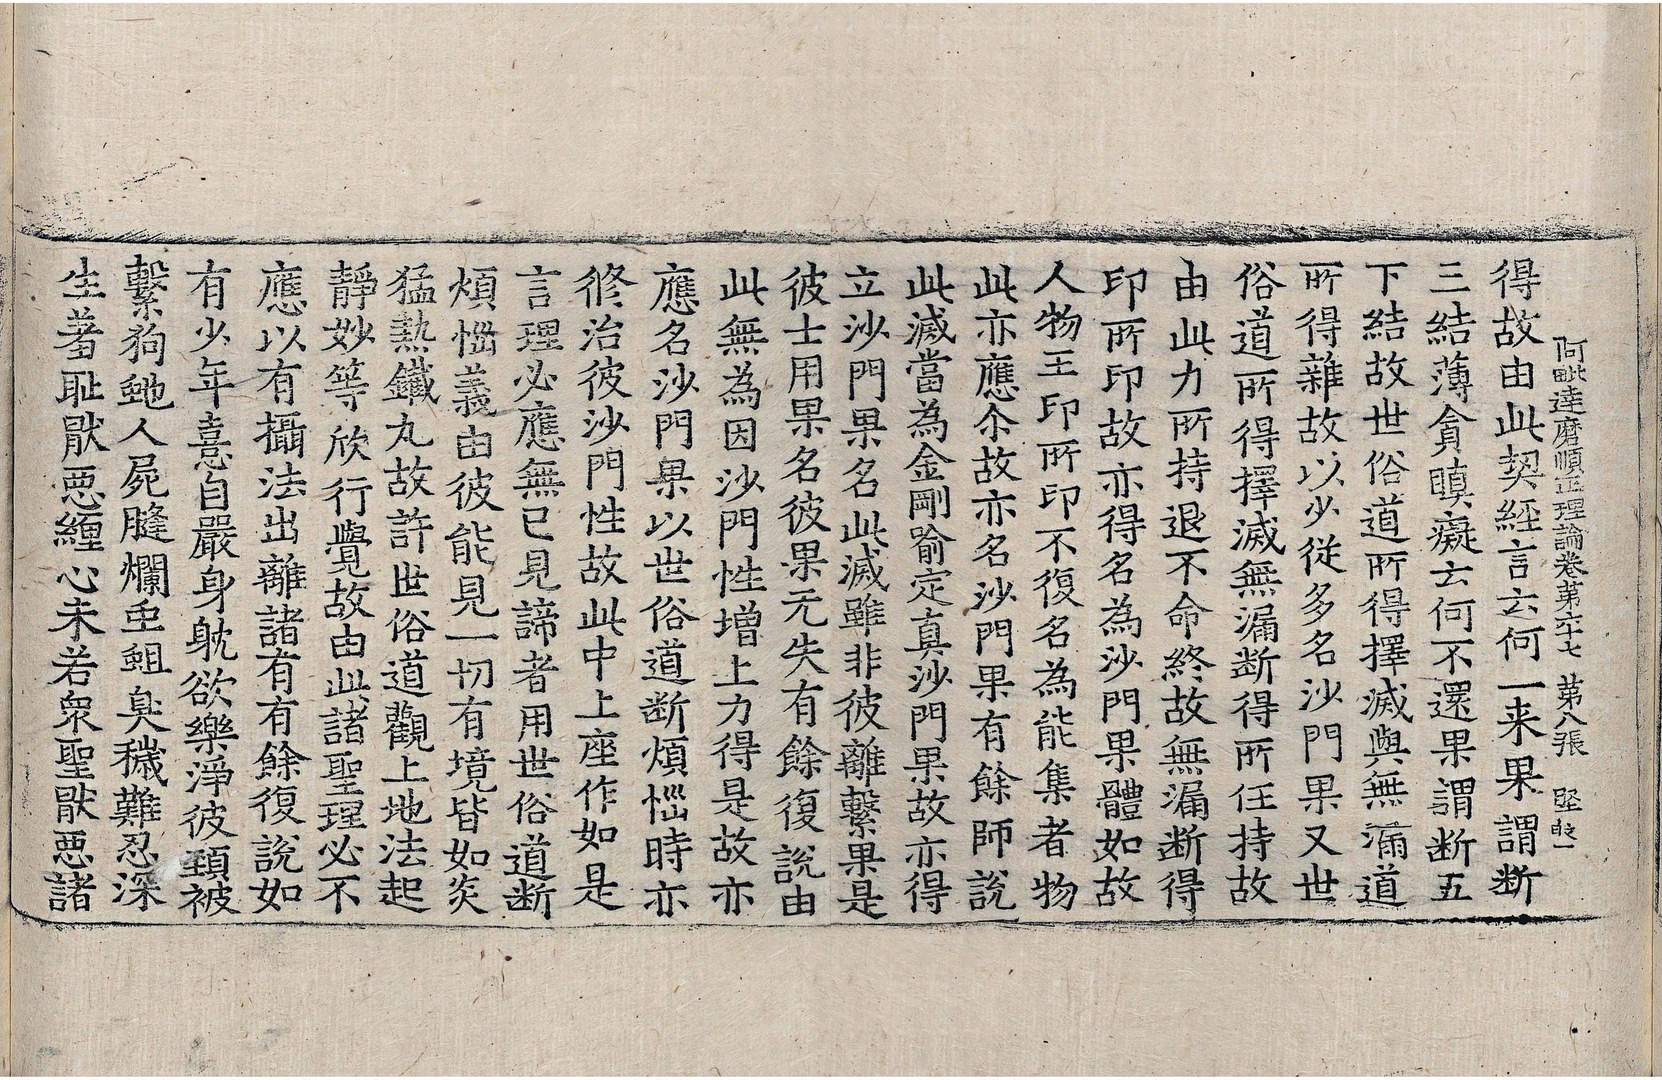 阿毗達磨順正理論卷第六十七　第八張　堅
得故由此契經言云何一来果謂断
三結薄貪瞋癡云何不還果謂断五
下結故世俗道所得擇滅與無漏道
所得雜故以少従多名沙門果又世
俗道所得擇滅無漏断得所任持故
由此力所持退不命終故無漏断得
印所印故亦得名為沙門果體如故
人物王印所印不復名為能集者物
此亦應尒故亦名沙門果有餘師說
此滅當為金剛喻定真沙門果故亦得
立沙門果名此滅雖非彼離繫果是
彼士用果名彼果无失有餘復說由
此無為因沙門性增上力得是故亦
應名沙門果以世俗道断煩惱時亦
修治彼沙門性故此中上座作如是
言理必應無已見諦者用世俗道断
煩惱義由彼能見一切有境皆如炎
猛熱鐵丸故許世俗道觀上地法起
靜妙等欣行覺故由此諸聖理必不
應以有攝法出離諸有有餘復說如
有少年憙自嚴身躭欲樂淨彼頚被
繫狗虵人屍膖爛虫蛆臭穢難忍深
生著恥猒惡纏心未若衆聖猒惡諸